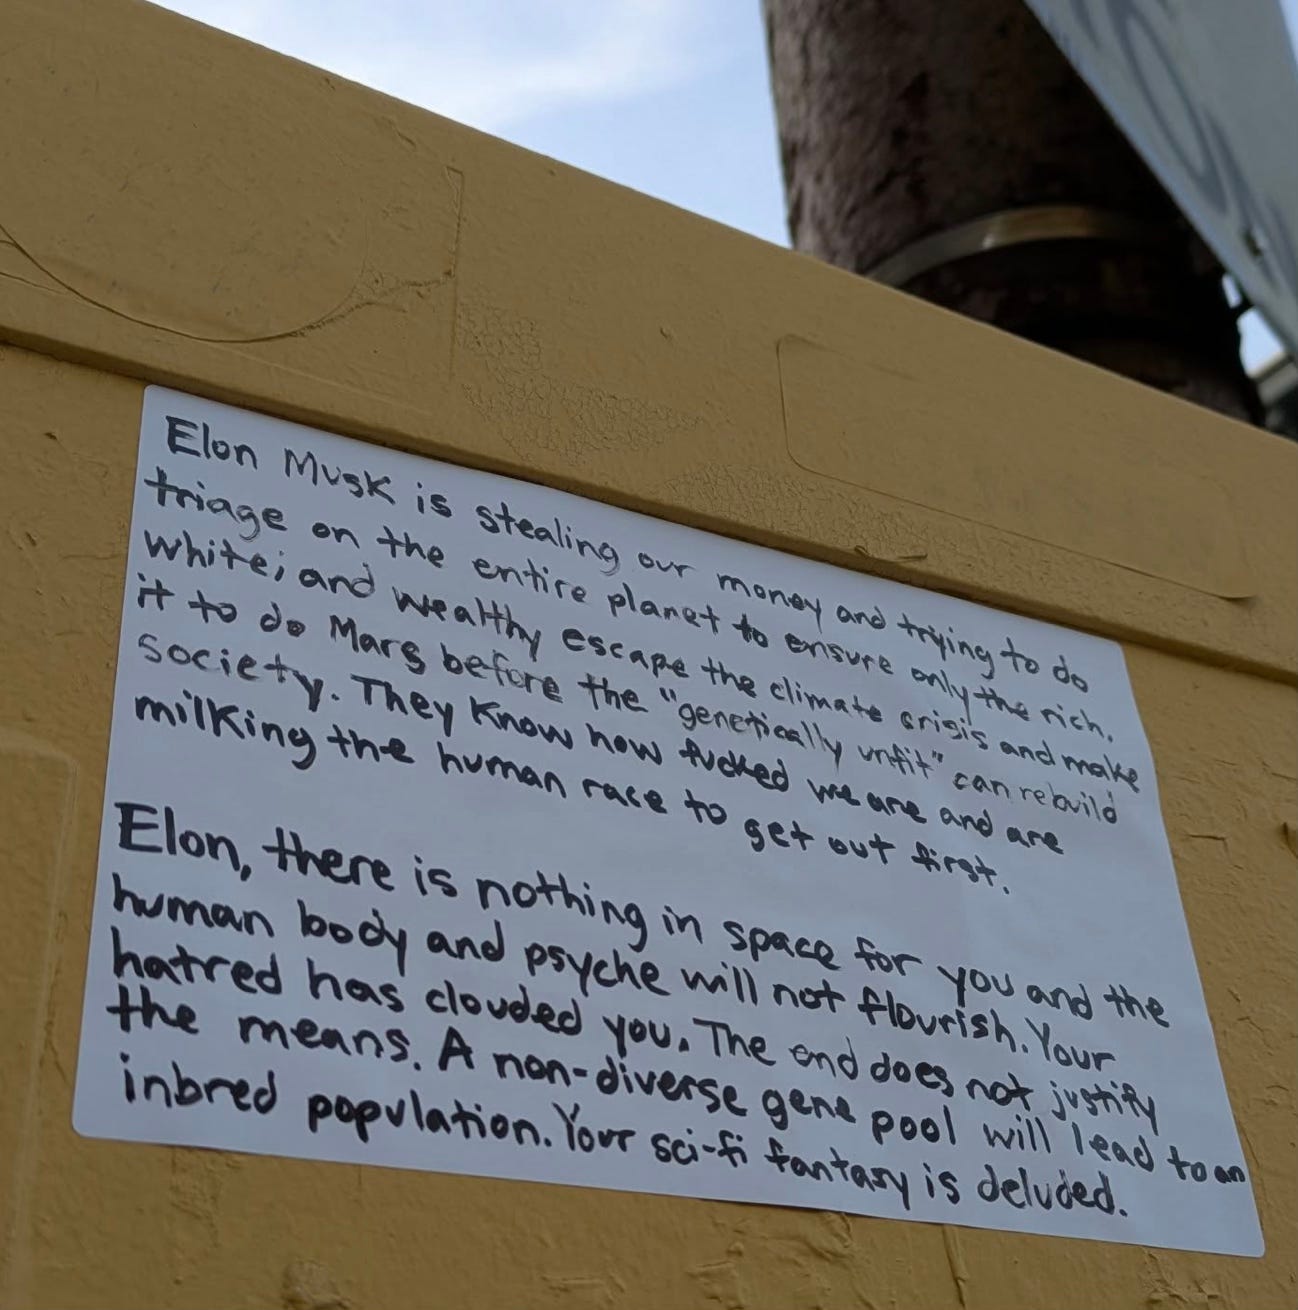 Elon Musk is stealing our money and trying to do
triage on the entire planet to ensure only the rich,
white, and wealthy escape the climate crisis and make
it to do Mars before the "genetically unfit" can rebuild
society. They know how fucked we are and are
milking the human race to get out first.
Elon, there is nothing in space for you and the
human body and psyche will not flourish. Your
hatred has clouded you. The end does not justify
the means. A non-diverse gene pool will lead to an
inbred population. Your sci-fi fantasy is deluded.